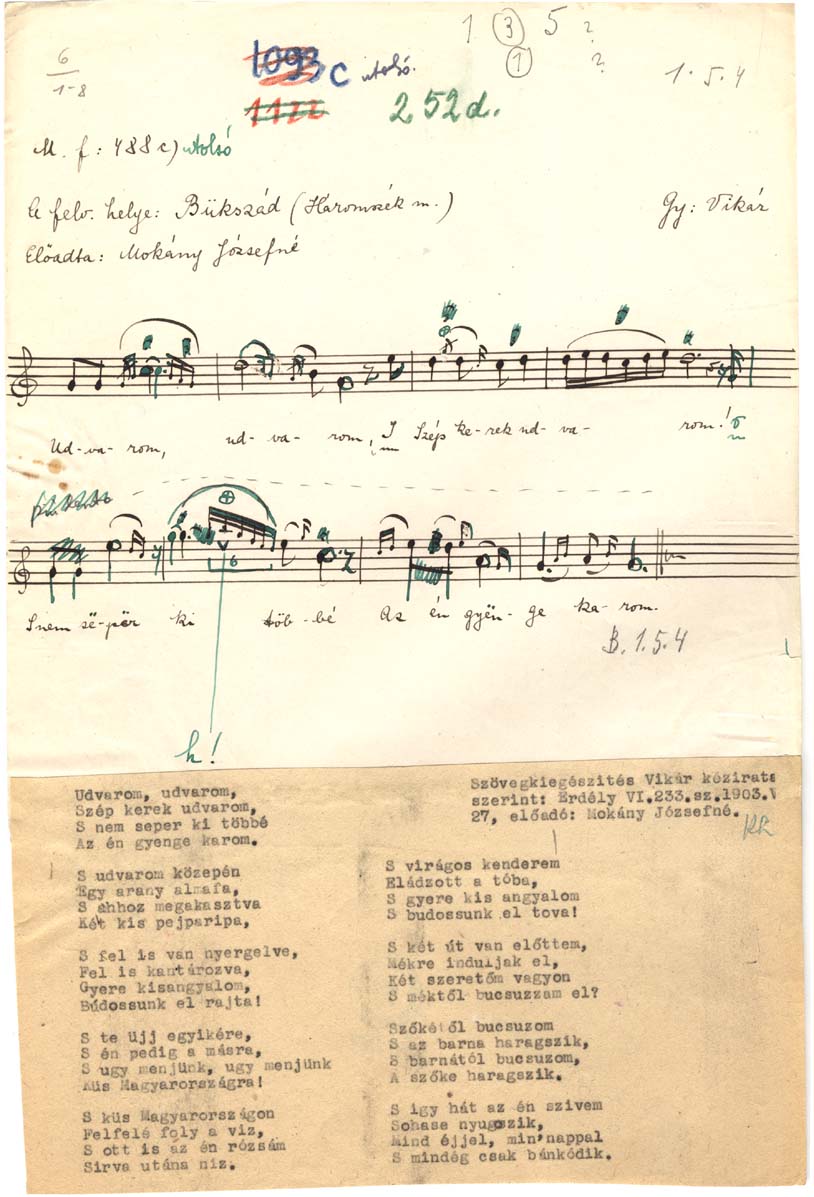 1 3 5 ?
1 ?
6
1-8
1093 c utolsó.
1.5.4
1122
252d.
M. f: 488c) utolsó
A felv. helye: Bükszád (Háromszék m.)
Gy: Vikár
Előadta: Mokány Józsefné
Ud-va-rom, ud-va-rom, I Szép ke-rek ud-va-rom!
S nem së-për ki töb-bé Az én gyën-ge ka-rom.
6
B. 1.5.4
h!
Udvarom, udvarom,
Szép kerek udvarom,
S nem seper ki többé
Az én gyenge karom.
S udvarom közepén
Egy arany almafa,
S ahhoz megakasztva
Két kis pejparipa,
S fel is van nyergelve,
Fel is kantározva,
Gyere kisangyalom,
Búdossunk el rajta!
S te üjj egyikére,
S én pedig a másra,
S ugy menjünk, ugy menjünk
Küs Magyarországra!
S küs Magyarországon
Felfelé foly a viz,
S ott is az én rózsám
Sirva utána niz.
Szövegkiegészités Vikár kézirata
szerint: Erdély VI.233.sz.1903.V
27, előadó: Mokány Józsefné.
S virágos kenderem
Eládzott a tóba,
S gyere kis angyalom
S budossunk el tova!
S két út van előttem,
Mékre induljak el,
Két szeretőm vagyon
S méktől bucsuzzam el?
Szőkétől bucsuzom
S az barna haragszik,
S barnától bucsuzom,
A szőke haragszik.
S igy hát az én szivem
Sohase nyugszik,
Mind éjjel, min'nappal
S mindég csak bánkódik.